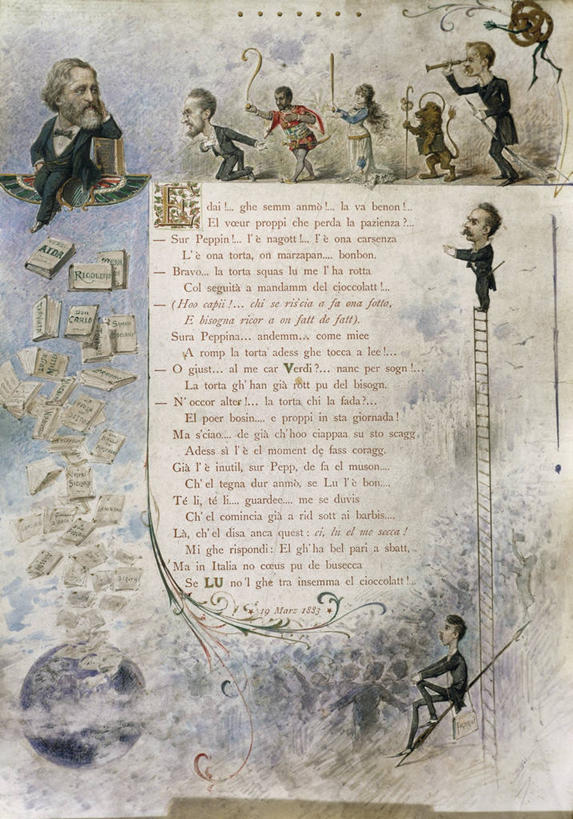 AIDA
RIGOLETTO
DON
CARLO
SIMON
E dai !... ghe semm anmò !... la va benon !...
El vœur proppi che perda la pazienza ?...
— Sur Peppin !... l'è nagott !... l'è ona carsenza
L'è ona torta, on marzapan.... bonbon.
— Bravo... la torta squas lu me l'ha rotta
Col seguità a mandamm del cioccolatt !...
— (Hoo capii !... chi se ris'cia a fa ona fotta,
E bisogna ricor a on fatt de fatt).
Sura Peppina... andemm... come miee
A romp la torta adess ghe tocca a lee !...
— O giust... al me car Verdi ?... nanc per sogn !...
La torta gh'han già rott pu del bisogn.
— N'occor alter !... la torta chi la fada ?...
El poer bosin.... e proppi in sta giornada !
Ma s'ciao.... de già ch'hoo ciappaa su sto scagg,
Adess sì l'è el moment de fass coragg.
Già l'è inutil, sur Pepp, de fa el muson....
Ch'el tegna dur anmò, se Lu l'è bon....
Té lì, té lì.... guardee.... me se duvis
Ch'el comincia già a rid sott ai barbis....
Là, ch'el disa anca quest : ci, lu el me secca !
Mi ghe rispondi : El gh'ha bel pari a sbatt,..
Ma in Italia no cœus pu de busecca
Se LU no'l ghe tra insemma el cioccolatt !...
19 Marz 1883